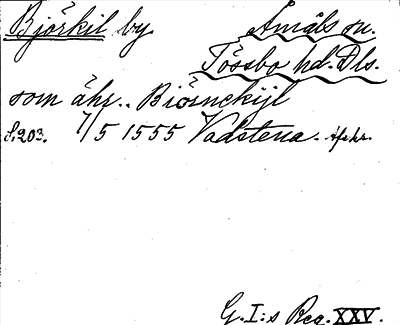 Bjõrkil by Åmåls sn.
Tössbo hd. Dls.
som ähr.. Biörnckijl
S.203. 7/5 1555 Vadstena. Afskr.
G.I:s Reg. XXV.